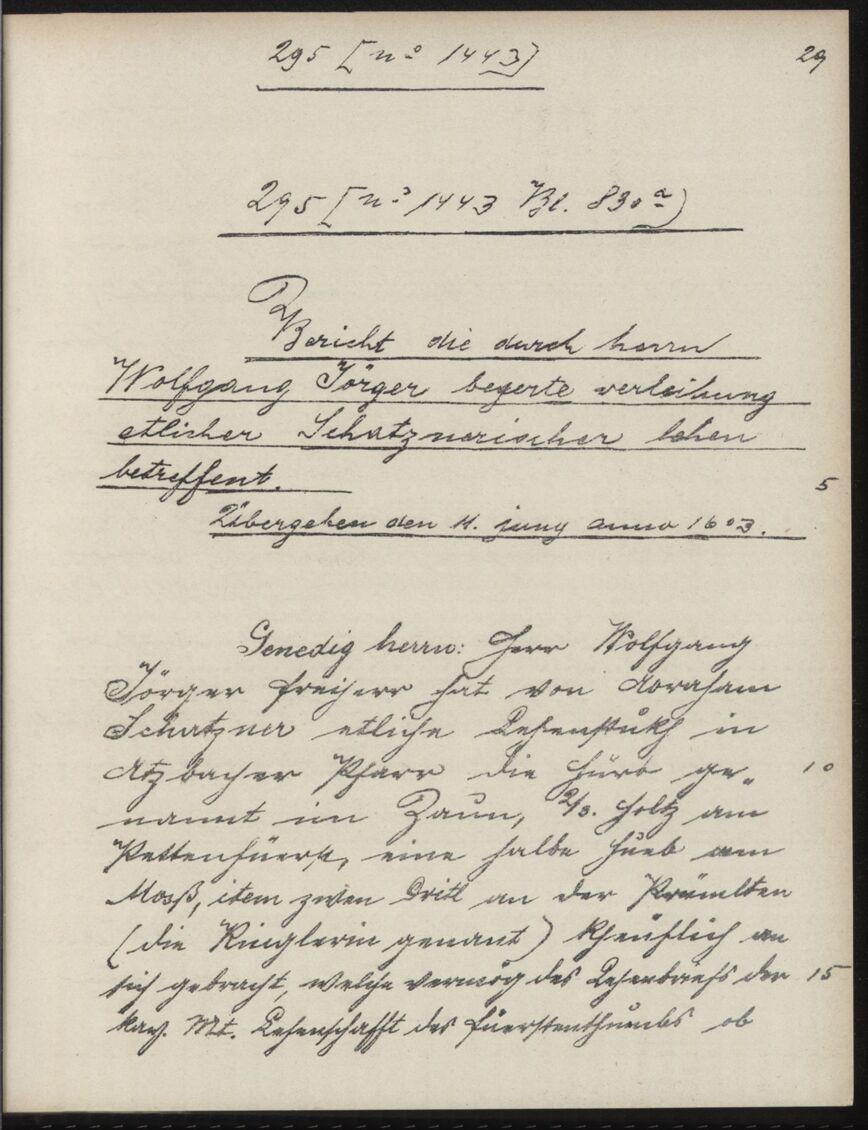 295 [nº 1443]
29
295 [nº 1443 Bl. 830a]
Bericht die durch herrn
Wolfgang Jörger begerte verleihung
etlicher Schatznerischer lehen
betreffent.
5
Übergeben den 11. juny anno 1603.
Genedig herrn: Herr Wolfgang
Jörger freiherr hat von Abraham
Schatzner etliche Lehenstukh in
Atzbacher Pfarr die Hüeb ge-
10
nannt im Zaun, 2/3. Holtz am
eine halbe Hueb am
Mosß, item zwen Dritl an der
(die Ringlerin genant) kheuflich an
sich gebracht, welche vermög des Lehenbriefs der
15
kay. Mt. Lehenschafft des fuerstenthumbs ob